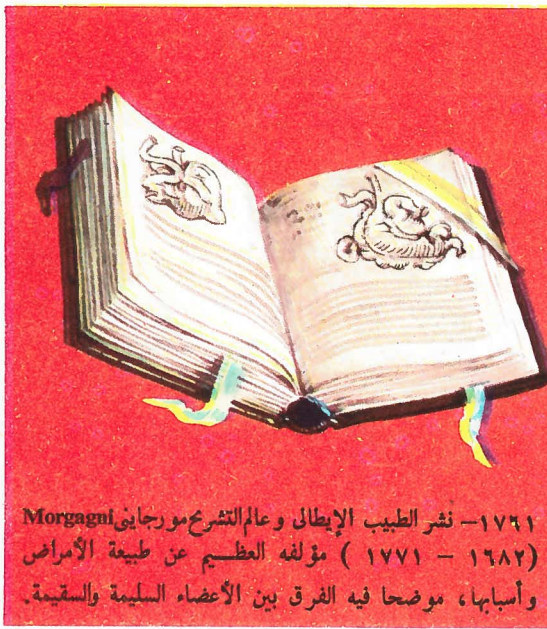 ١٧٦١– نشر الطبيب الإيطالى وعالم التشريح مورجاينى Morgagni
(١٦٨٢ – ١٧٧١ ) مؤلفه العظــيم عن طبيعة الأمراض
وأسبابها، موضحا فيه الفرق بين الأعضاء السليمة والسقيمة.